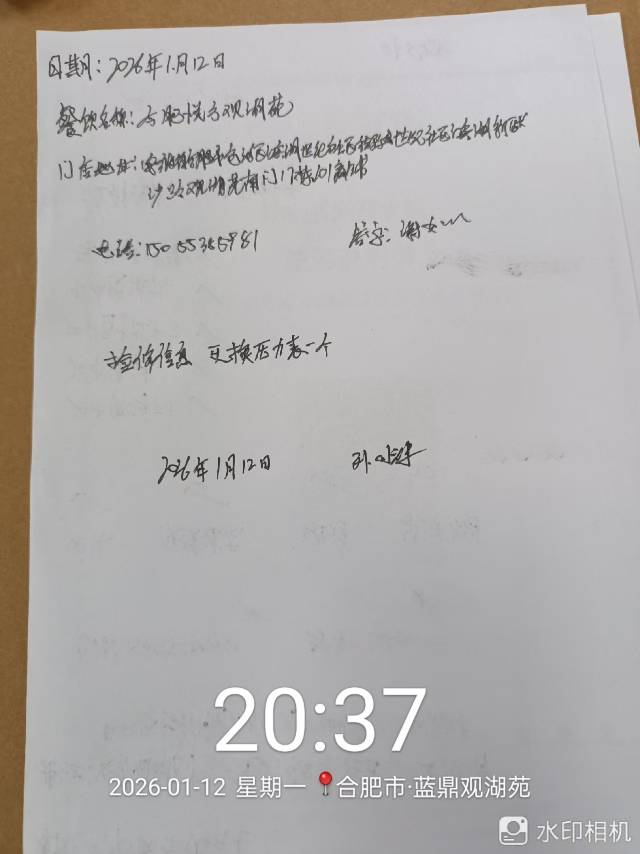 日期:2026年1月12日
餐饮名称:合肥悦方观湖苑
门店地址:安徽省合肥市包河区滨湖世纪社区 滨湖新区
观湖苑南门17栋101商铺
电话:150 5535 5981
签字:谢女
检修信息 更换压力表一个
2026年1月12日 孙
20:37
2026-01-12 星期一 合肥市·蓝鼎观湖苑
水印相机